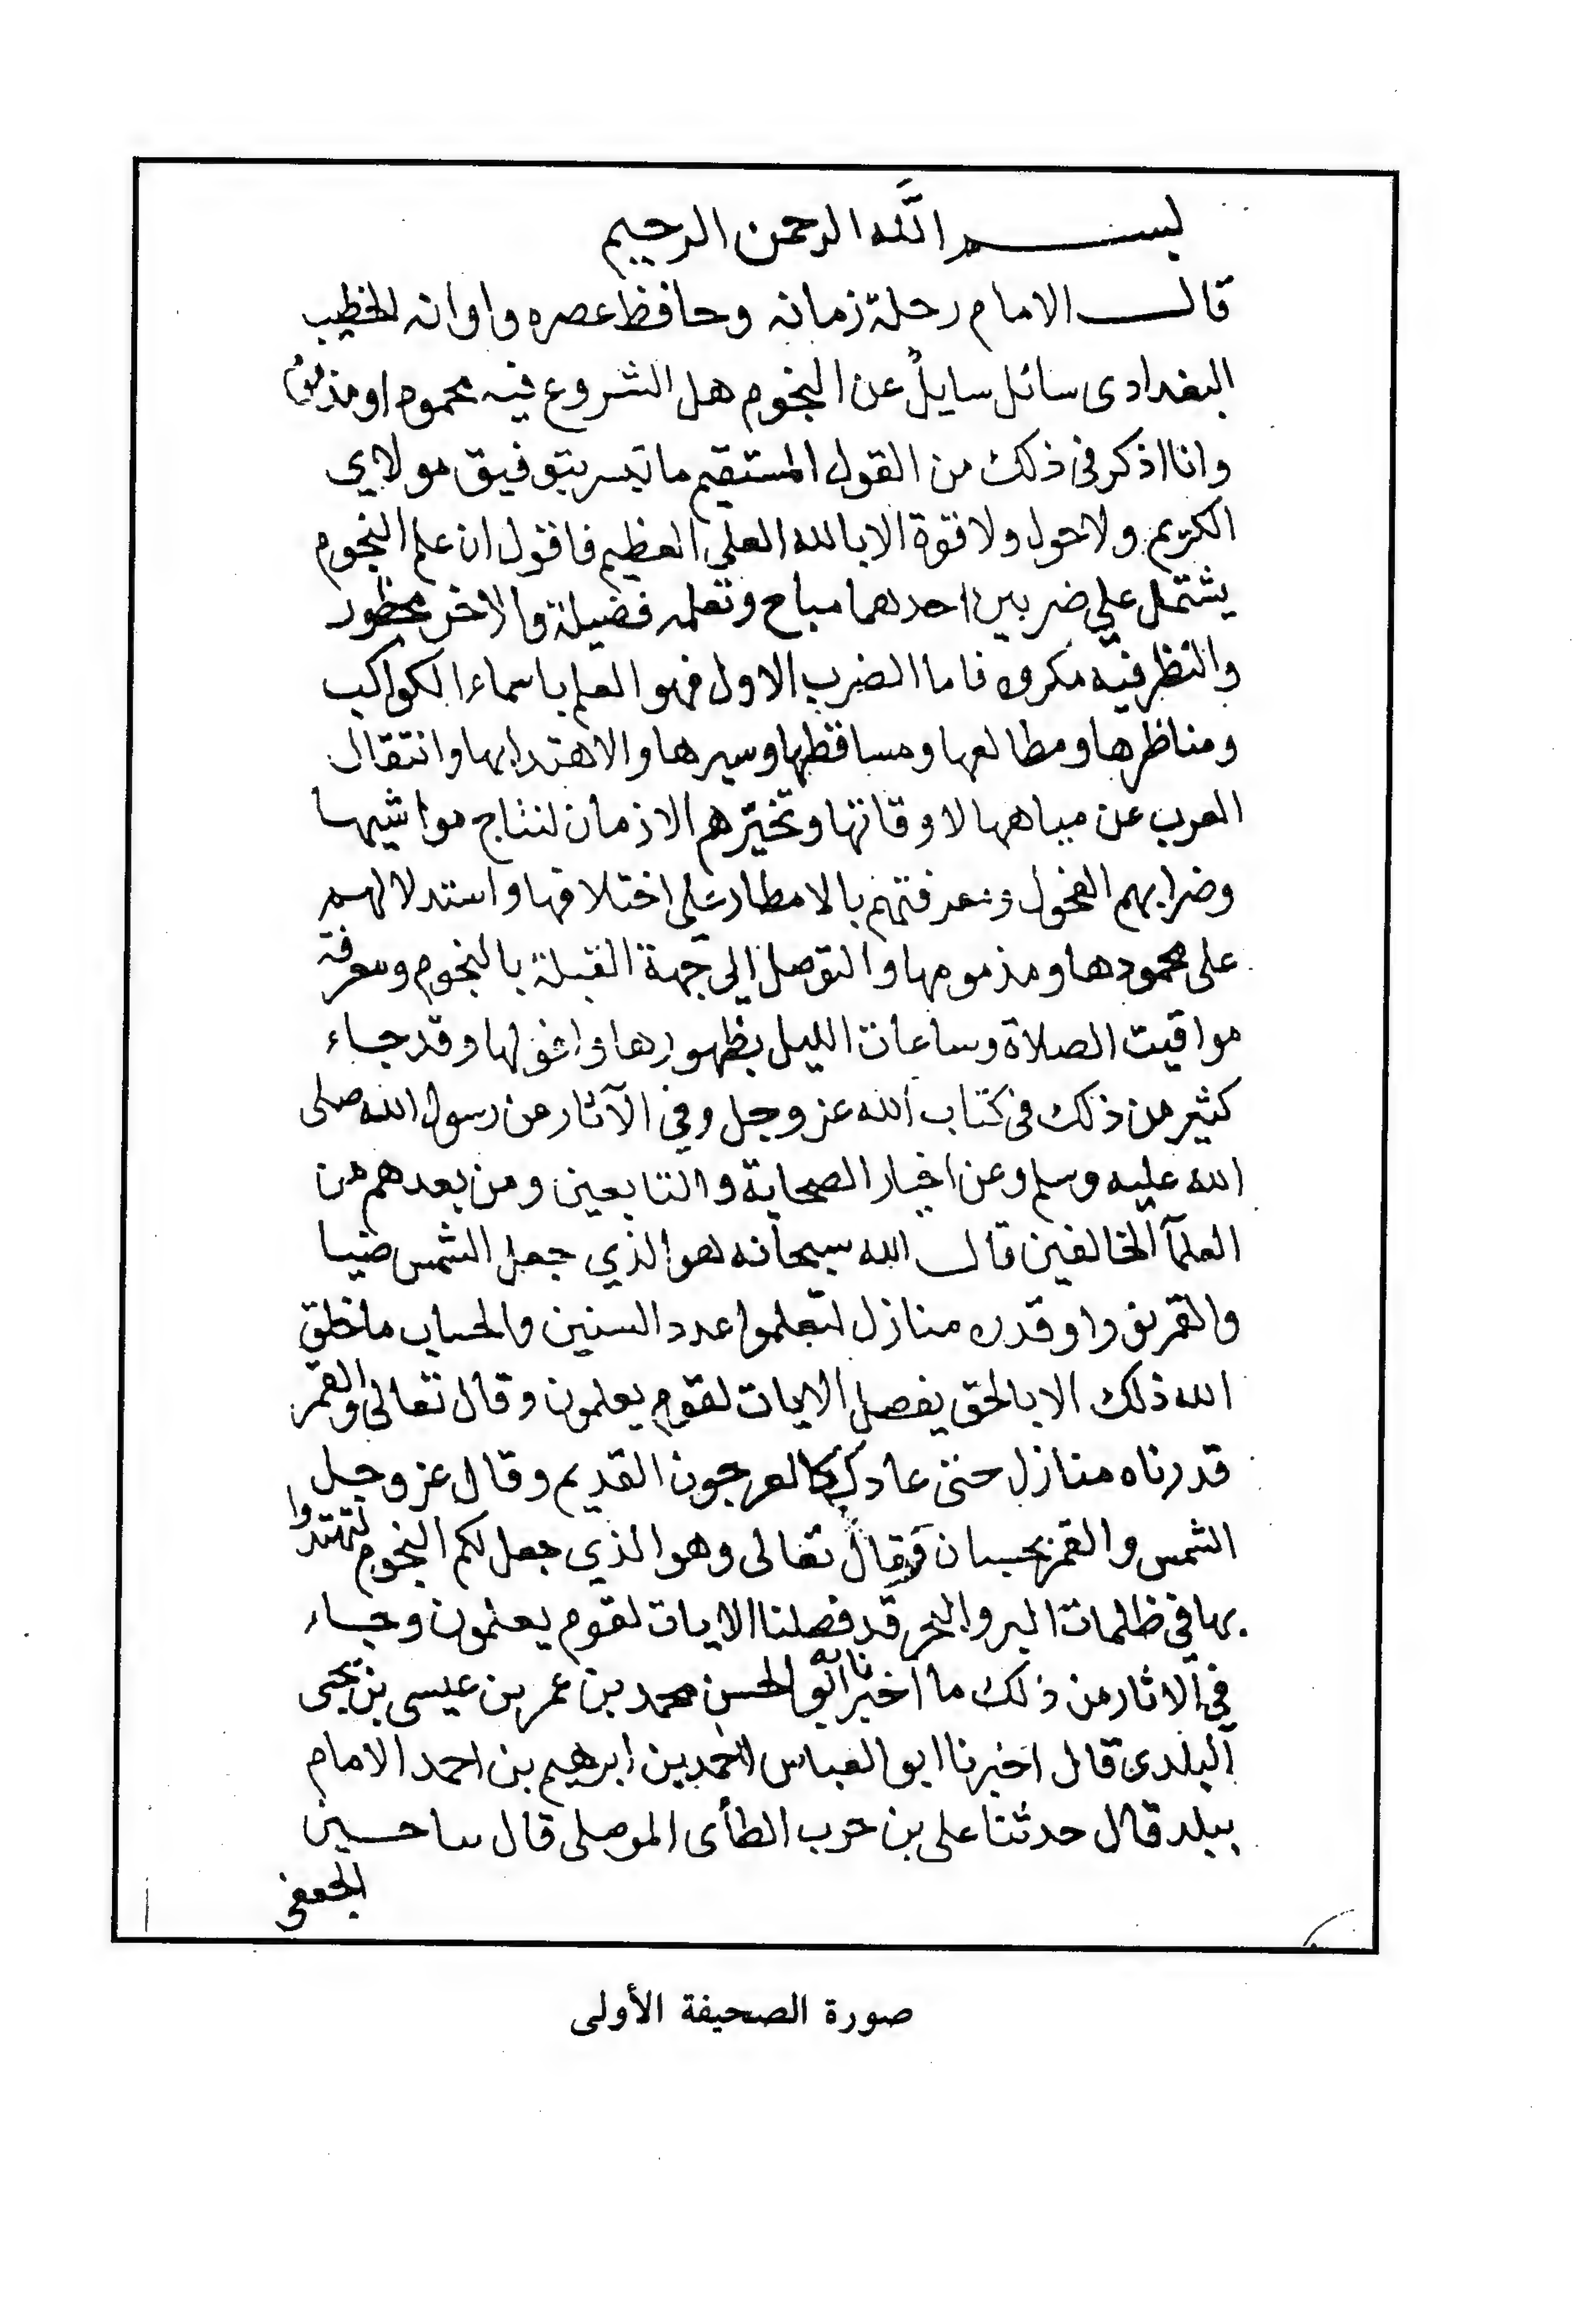 بسم الله الرحمن الرحيم
قال الامام رحلة زمانه وحافظ عصره واوانه الخطيب
البغدادى سائل سايل عن النجوم هل الشروع فيه محموم او مذموم
وانا اذكر فى ذلك من القول المستقيم ما تيسر بتوفيق مولاي
الكريم ولا حول ولا قوة الا بالله العلي العظيم فاقول ان علم النجوم
يشتمل علي ضربين احدهما مباح وتعلمه فضيلة والاخر محظور
والنظر فيه مكروه فاما الضرب الاول فهو العلم باسماء الكواكب
ومناظرها ومطالعها ومساقطها وسيرها والاهتدا بها وانتقال
العرب عن مياهها لاوقاتها وتخيّرهم الازمان لنتاج مواشيها
وضرابهم الفحول ومعرفتهم بالامطار على اختلافها واستدلالهم
على محمودها ومذمومها والتوصل إلى جهة القبلة بالنجوم ومعرفة
مواقيت الصلاة وساعات الليل بظهورها وافولها وقد جاء
كثير من ذلك فى كتاب الله عز وجل وفي الآثار من رسول الله صلى
الله عليه وسلم وعن اخيار الصحابة والتابعين ومن بعدهم من
العلمآ الخالفين قال الله سبحانه هو الذي جعل الشمس ضيا
والقمر نورا وقدره منازل لتعلموا عدد السنين والحساب ما خلق
الله ذلك الا بالحق يفصل الايات لقوم يعلمون وقال تعالى والقمر
قدرناه منازل حتى عاد كالعرجون القديم وقال عز وجل
الشمس والقمر بحسبان وقال تعالى وهو الذي جعل لكم النجوم لتهتدوا
بها في ظلمات البر والبحر قد فصلنا الايات لقوم يعلمون وجاء
في الاثار من ذلك ما اخبرنا به ابو الحسن محمد بن عمر بن عيسى بن يحيى
البلدى قال اخبرنا ابو العباس احمد بن ابرهيم بن احمد الامام
ببلد قال حدثنا على بن حرب الطأى الموصلى قال سا حسين
الجعفى
صورة الصحيفة الأولى